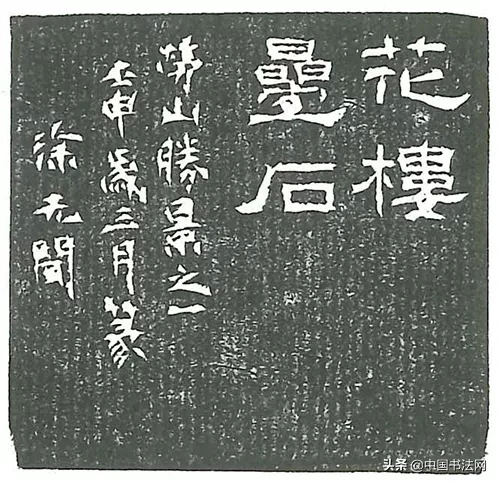 花樓
曡石
山勝景之一
壬申歲三月篆
徐无聞
头条@中国书法网